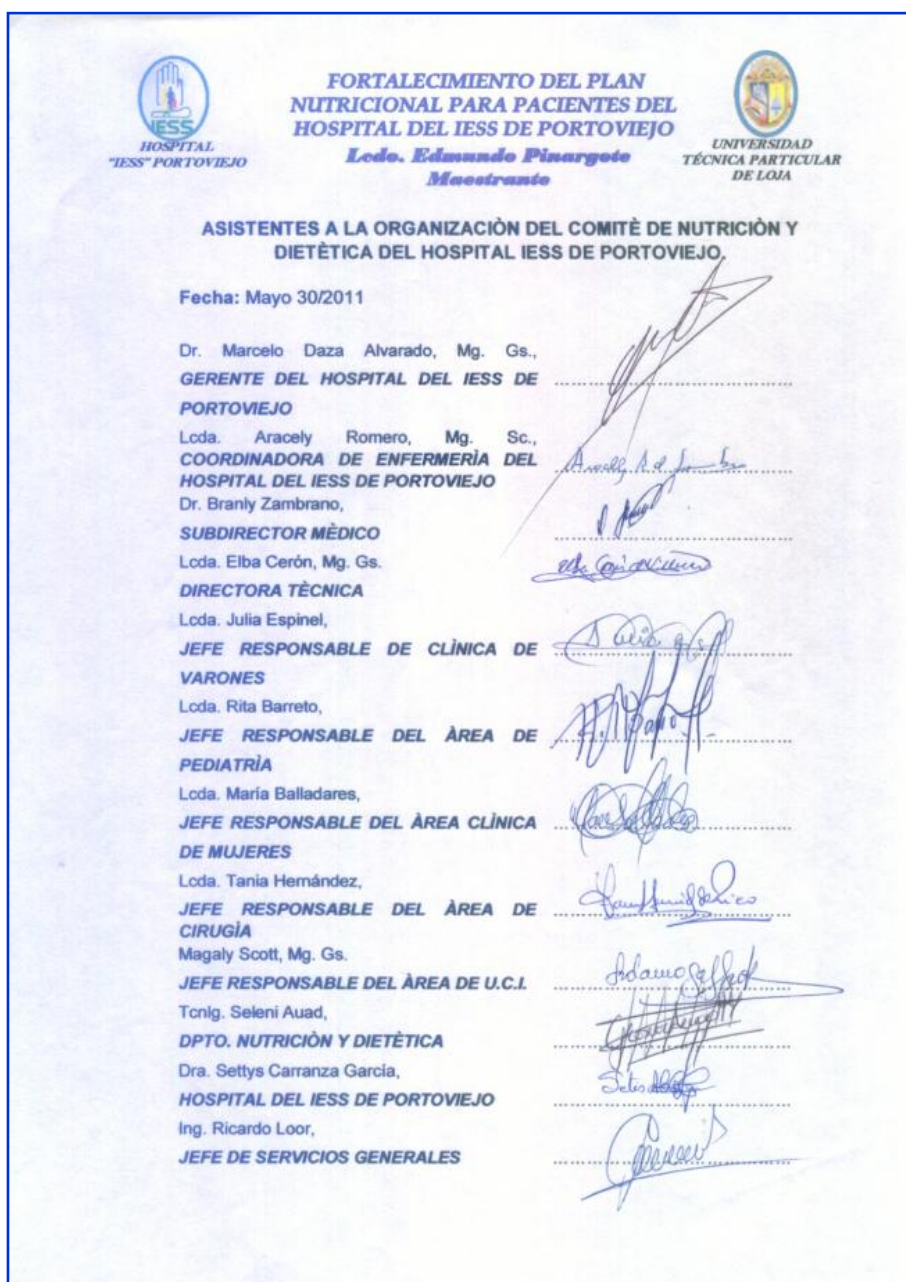 IESS
HOSPITAL
"IESS" PORTOVIEJO
FORTALECIMIENTO DEL PLAN
NUTRICIONAL PARA PACIENTES DEL
HOSPITAL DEL IESS DE PORTOVIEJO
Lcdo. Edmundo Pinargote
Maestrante
UNIVERSIDAD
TÉCNICA PARTICULAR
DE LOJA
ASISTENTES A LA ORGANIZACIÒN DEL COMITÈ DE NUTRICIÒN Y
DIETÈTICA DEL HOSPITAL IESS DE PORTOVIEJO.
Fecha: Mayo 30/2011
Dr. Marcelo Daza Alvarado, Mg. Gs.,
GERENTE DEL HOSPITAL DEL IESS DE
PORTOVIEJO
Lcda. Aracely Romero, Mg. Sc.,
COORDINADORA DE ENFERMERÌA DEL
HOSPITAL DEL IESS DE PORTOVIEJO
Dr. Branly Zambrano,
SUBDIRECTOR MÈDICO
Lcda. Elba Cerón, Mg. Gs.
DIRECTORA TÈCNICA
Lcda. Julia Espinel,
JEFE RESPONSABLE DE CLÌNICA DE
VARONES
Lcda. Rita Barreto,
JEFE RESPONSABLE DEL ÀREA DE
PEDIATRÌA
Lcda. María Balladares,
JEFE RESPONSABLE DEL ÀREA CLÌNICA
DE MUJERES
Lcda. Tania Hernández,
JEFE RESPONSABLE DEL ÀREA DE
CIRUGÌA
Magaly Scott, Mg. Gs.
JEFE RESPONSABLE DEL ÀREA DE U.C.I.
Tcnlg. Seleni Auad,
DPTO. NUTRICIÒN Y DIETÈTICA
Dra. Settys Carranza García,
HOSPITAL DEL IESS DE PORTOVIEJO
Ing. Ricardo Loor,
JEFE DE SERVICIOS GENERALES